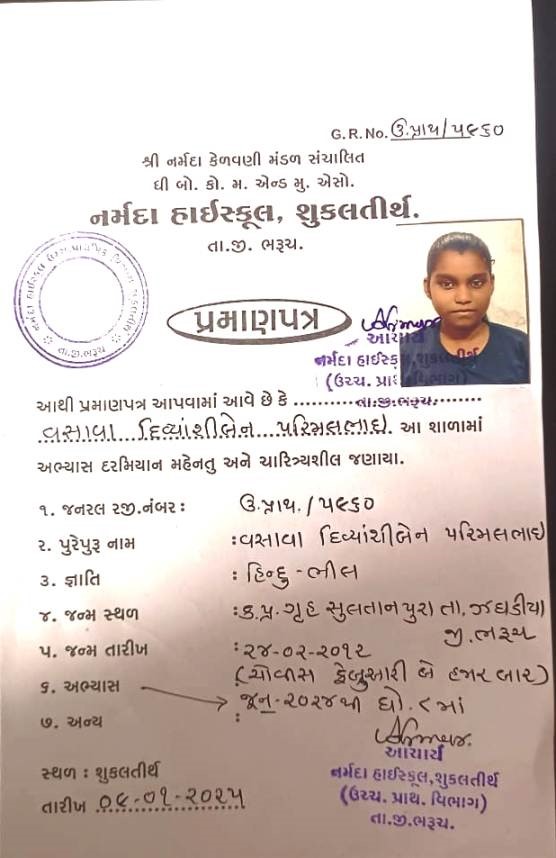 G.R.No. ઉ.પ્રાથ/૫૯૬૦
શ્રી નર્મદા કેળવણી મંડળ સંચાલિત
ધી બો. કો. મ. એન્ડ મુ. એસો.
નર્મદા હાઈસ્કૂલ, શુકલતીર્થ.
તા.જી. ભરૂચ.
પ્રમાણપત્ર
આચાર્ય
નર્મદા હાઈસ્કૂલ,શુકલતીર્થ
(ઉચ્ચ. પ્રાથ. વિભાગ)
તા.જી.ભરૂચ.
આથી પ્રમાણપત્ર આપવામાં આવે છે કે
વસાવા દિવ્યાંશીબેન પરિમલભાઇ આ શાળામાં
અભ્યાસ દરમિયાન મહેનતુ અને ચારિત્ર્યશીલ જણાયા.
૧. જનરલ રજી.નંબર : ઉ.પ્રાથ./૫૯૬૦
૨. પુરેપુરૂ નામ : વસાવા દિવ્યાંશીબેન પરિમલભાઇ
૩. જ્ઞાતિ : હિન્દુ-ભીલ
૪. જન્મ સ્થળ : ક.પ્ર.ગૃહ સુલતાનપુરા તા. ઝઘડીયા
જી.ભરૂચ
૫. જન્મ તારીખ : ૨૪-૦૨-૨૦૧૨
(ચોવીસ ફેબ્રુઆરી બે હજાર બાર)
૬. અભ્યાસ જૂન-૨૦૨૪થી ધો.૮માં
૭. અન્ય :
આચાર્ય
નર્મદા હાઈસ્કૂલ,શુકલતીર્થ
(ઉચ્ચ. પ્રાથ. વિભાગ)
તા.જી.ભરૂચ.
સ્થળ : શુકલતીર્થ
તારીખ ૦૯-૦૧-૨૦૨૫